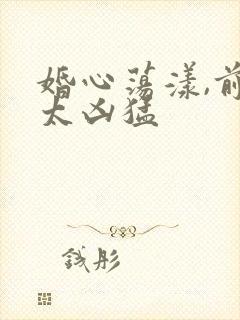 婚心荡漾,前
太凶猛
钱彤